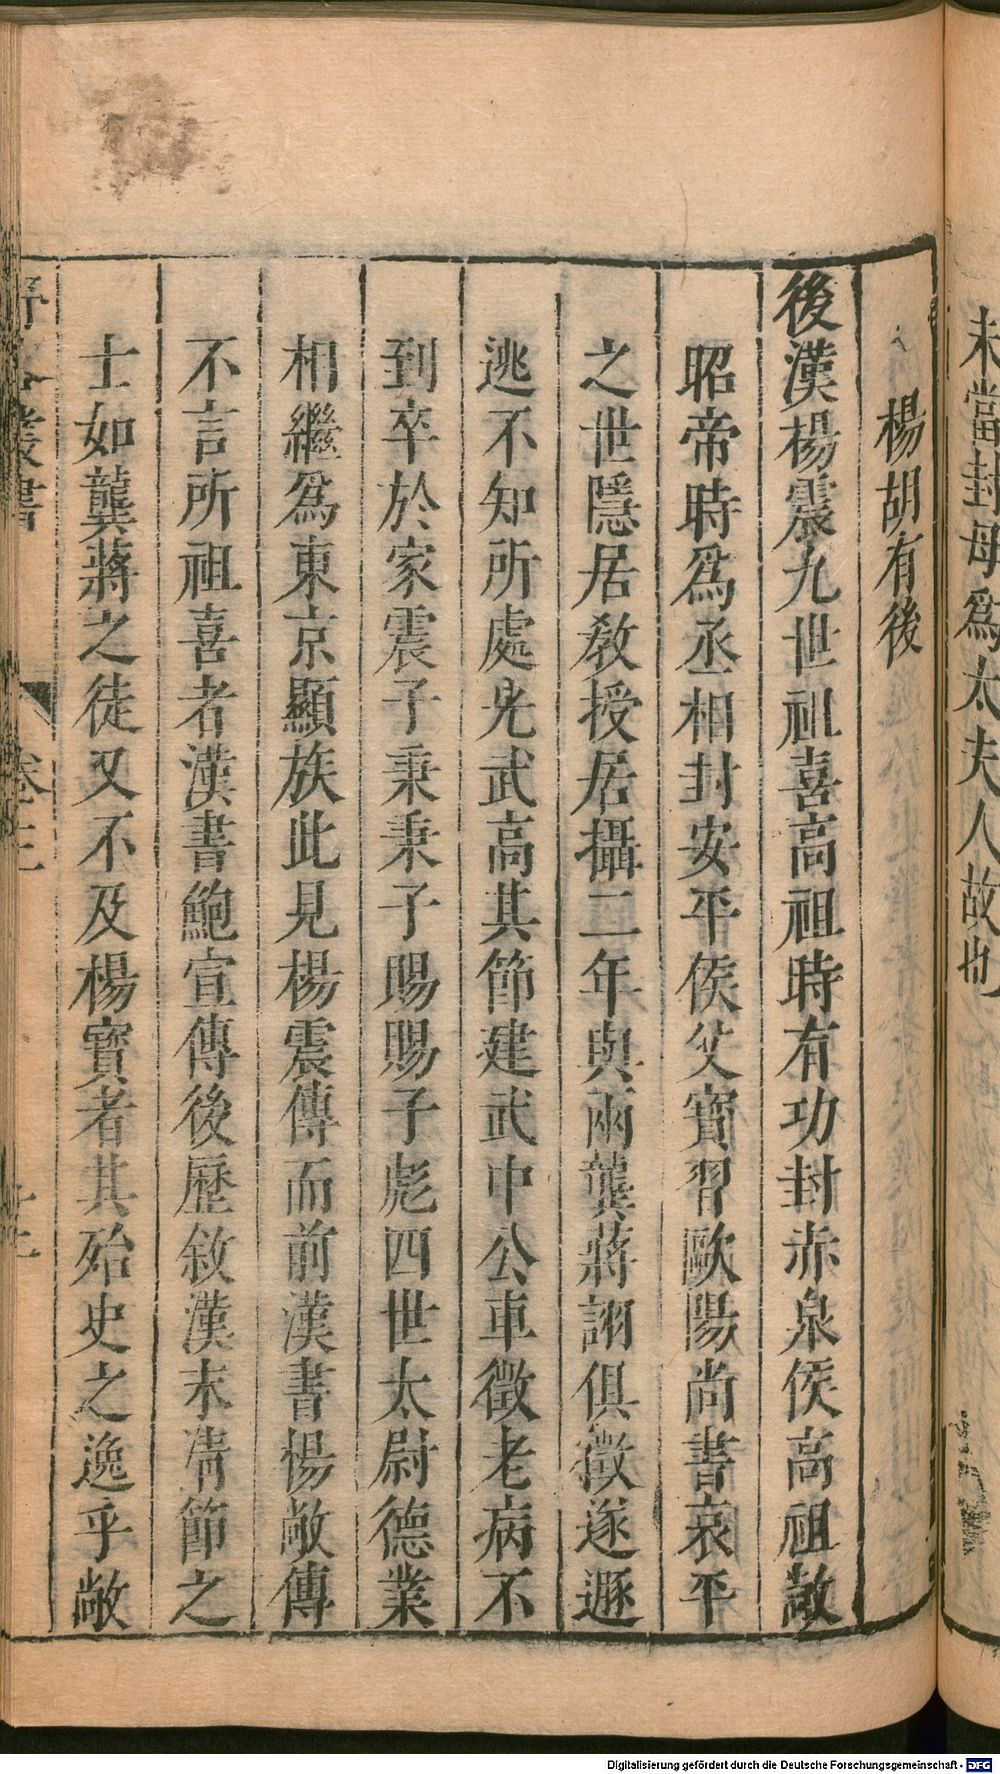 未當封母為太夫人故也
楊胡有後
後漢楊震九世祖喜高祖時有功封赤泉侯高祖敞
昭帝時為丞相封安平侯父寳習歐陽尚書哀平
之世隱居教授居攝二年與兩龔蔣詡俱徵遂遯
逃不知所處光武高其節建武中公車徵老病不
到卒於家震子秉秉子賜賜子彪四世太尉德業
相繼為東京顯族此見楊震傳而前漢書楊敞傳
不言所祖喜者漢書鮑宣傳後歷敘漢末清節之
士如龔蔣之徒又不及楊寳者其殆史之逸乎敞
叢書
卷三
Digitalisierung gefördert durch die Deutsche Forschungsgemeinschaft - DFG